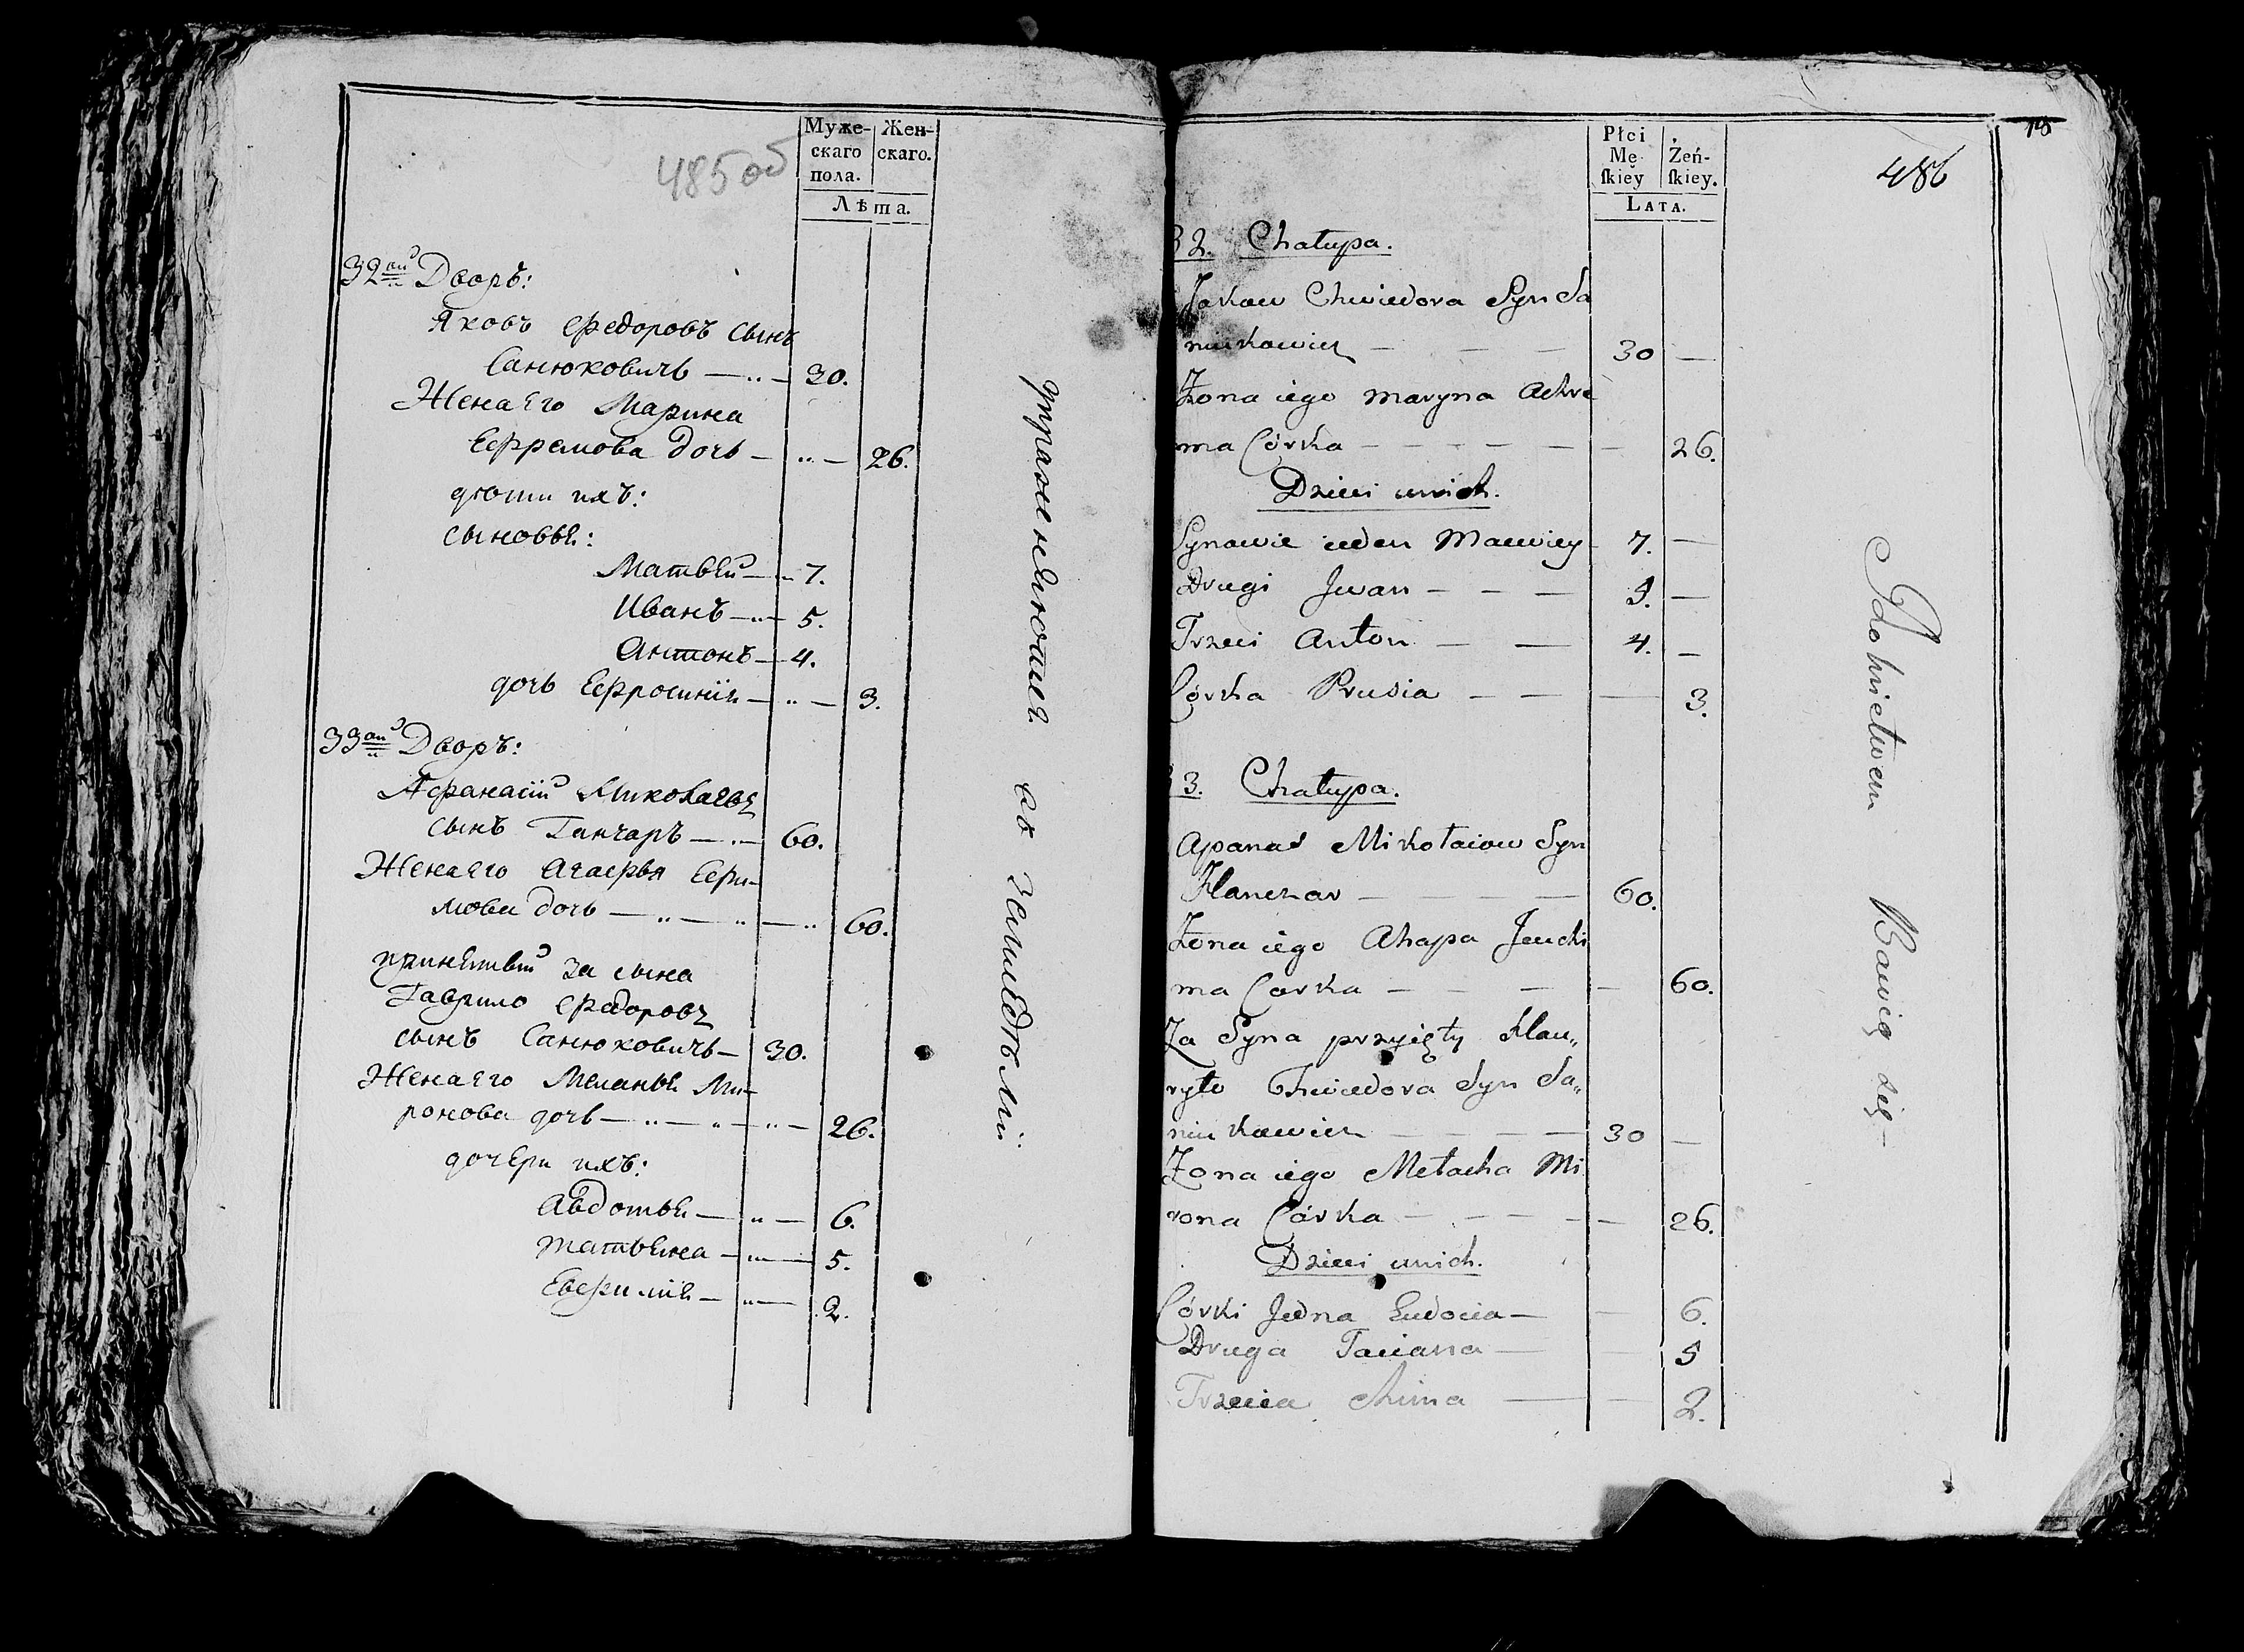 485 об
Муже-
скаго
пола.
Жен-
скаго.
Лѣта.
32ой Дворъ:
Яковъ Федоровъ сынъ
Санюковичь — „ — 30.
Жена Его Марина
Ефремова дочь — „ — 26.
дѣти ихъ:
сыновья:
Матвѣй — 7.
Иванъ — „ — 5.
Антонъ — 4.
дочь Ефросинія — „ — 3.
33ой Дворъ:
Афанасій Миколаевъ
сынъ Ганчаръ — „ — 60.
Жена Его Агафья Ефи-
мова дочь — „ — „ — „ 60.
принятый за сына
Гаврило Федоровъ
сынъ Санюковичь — 30.
Жена Его Меланья Ми-
ронова дочь — „ — „ — „ — 26.
дочери ихъ:
Авдотья — „ — 6.
Татьяна — „ — 5.
Евфимія — „ — 2.
упражняются въ земледѣліи.
486
Płci
Mę
skiey
Żeń-
skiey.
LATA.
32. Chałupa.
Jakow Chwiedora Syn Sa
niukowicz — — — 30 —
Żona iego Maryna Achre
ma Córka — — — — — 26.
Dzieci unich.
Synowie ieden Maciey 7. —
Drugi Jwan — — — 5. —
Trzeci Anton — — 4. —
Córka Prusia — — — 3.
33. Chałupa.
Apanas Mikołaiow Syn
Hanczar — — — — 60.
Żona iego Ahapa Jeuchi
ma Corka — — — — 60.
Za Syna przyięty Hau„
ryło Chwiedora Syn Sa„
niukowicz — — — — 30 —
Żona iego Mełacha Mi
rona Córka — — — — — 26.
Dzieci unich.
Córki Jedna Eudocia — — 6.
Druga Taciana — — 5
Trzecia Chima — — 2.
Rolnictwem Bawią się —